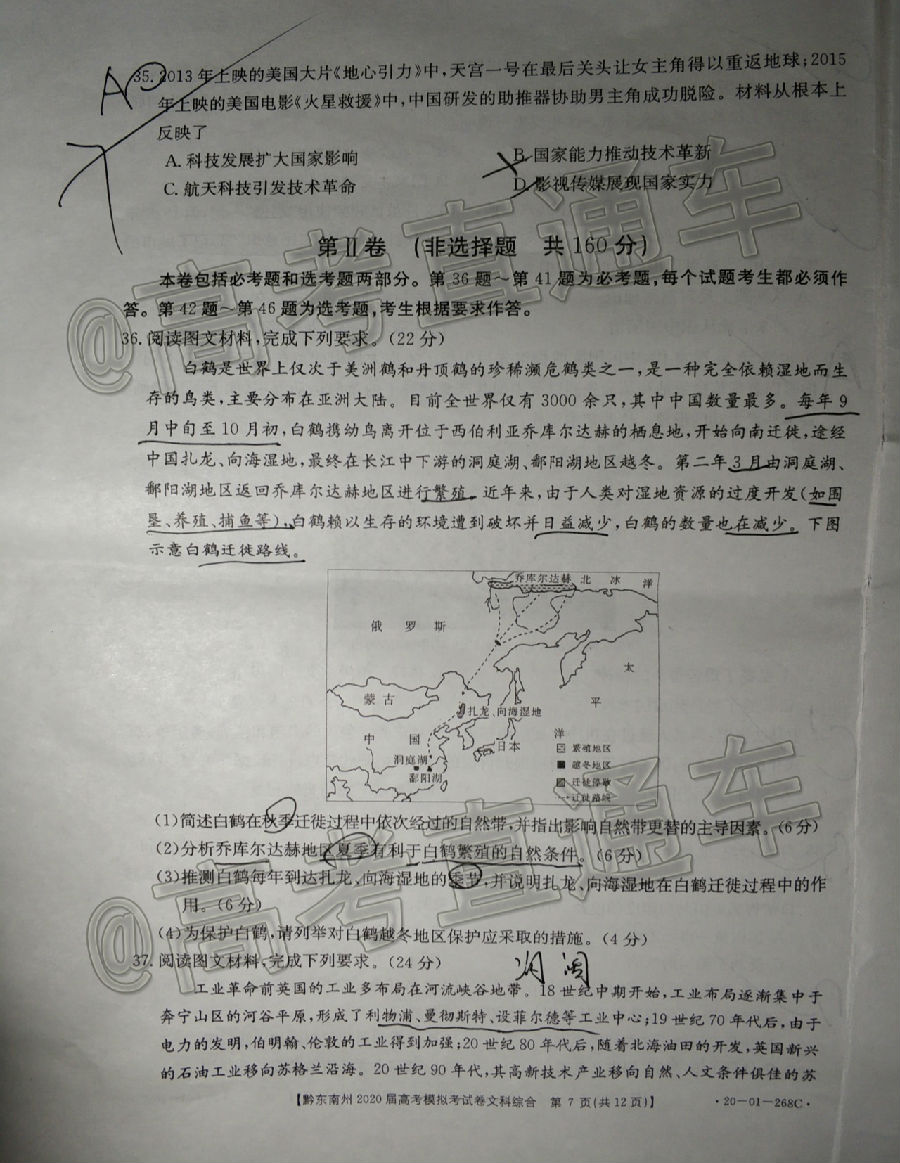 35. 2013年上映的美国大片《地心引力》中,天宫一号在最后关头让女主角得以重返地球;2015
年上映的美国电影《火星救援》中,中国研发的助推器协助男主角成功脱险。材料从根本上
反映了
A. 科技发展扩大国家影响
B. 国家能力推动技术革新
C. 航天科技引发技术革命
D. 影视传媒展现国家实力
第Ⅱ卷 (非选择题 共160分)
本卷包括必考题和选考题两部分。第36题~第41题为必考题,每个试题考生都必须作
答。第42题~第46题为选考题,考生根据要求作答。
36. 阅读图文材料,完成下列要求。(22分)
白鹤是世界上仅次于美洲鹤和丹顶鹤的珍稀濒危鹤类之一,是一种完全依赖湿地而生
存的鸟类,主要分布在亚洲大陆。目前全世界仅有3000余只,其中中国数量最多。每年9
月中旬至10月初,白鹤携幼鸟离开位于西伯利亚乔库尔达赫的栖息地,开始向南迁徙,途经
中国扎龙、向海湿地,最终在长江中下游的洞庭湖、鄱阳湖地区越冬。第二年3月由洞庭湖、
鄱阳湖地区返回乔库尔达赫地区进行繁殖。近年来,由于人类对湿地资源的过度开发(如围
垦、养殖、捕鱼等),白鹤赖以生存的环境遭到破坏并日益减少,白鹤的数量也在减少。下图
示意白鹤迁徙路线。
乔库尔达赫 北冰洋
俄罗斯
太
平
洋
蒙古
扎龙、向海湿地
中国
日本
洞庭湖
鄱阳湖
繁殖地区
越冬地区
迁徙停歇
迁徙路线
(1)简述白鹤在秋季迁徙过程中依次经过的自然带,并指出影响自然带更替的主导因素。(6分)
(2)分析乔库尔达赫地区夏季有利于白鹤繁殖的自然条件。(6分)
(3)推测白鹤每年到达扎龙、向海湿地的季节,并说明扎龙、向海湿地在白鹤迁徙过程中的作
用。(6分)
(4)为保护白鹤,请列举对白鹤越冬地区保护应采取的措施。(4分)
37. 阅读图文材料,完成下列要求。(24分)
工业革命前英国的工业多布局在河流峡谷地带。18世纪中期开始,工业布局逐渐集中于
奔宁山区的河谷平原,形成了利物浦、曼彻斯特、设菲尔德等工业中心;19世纪70年代后,由于
电力的发明,伯明翰、伦敦的工业得到加强;20世纪80年代后,随着北海油田的开发,英国新兴
的石油工业移向苏格兰沿海。20世纪90年代,其高新技术产业移向自然、人文条件俱佳的苏
【黔东南州2020届高考模拟考试卷文科综合 第7页(共12页)】 ·20-01-268C·
@高考直通车
@高考直通车